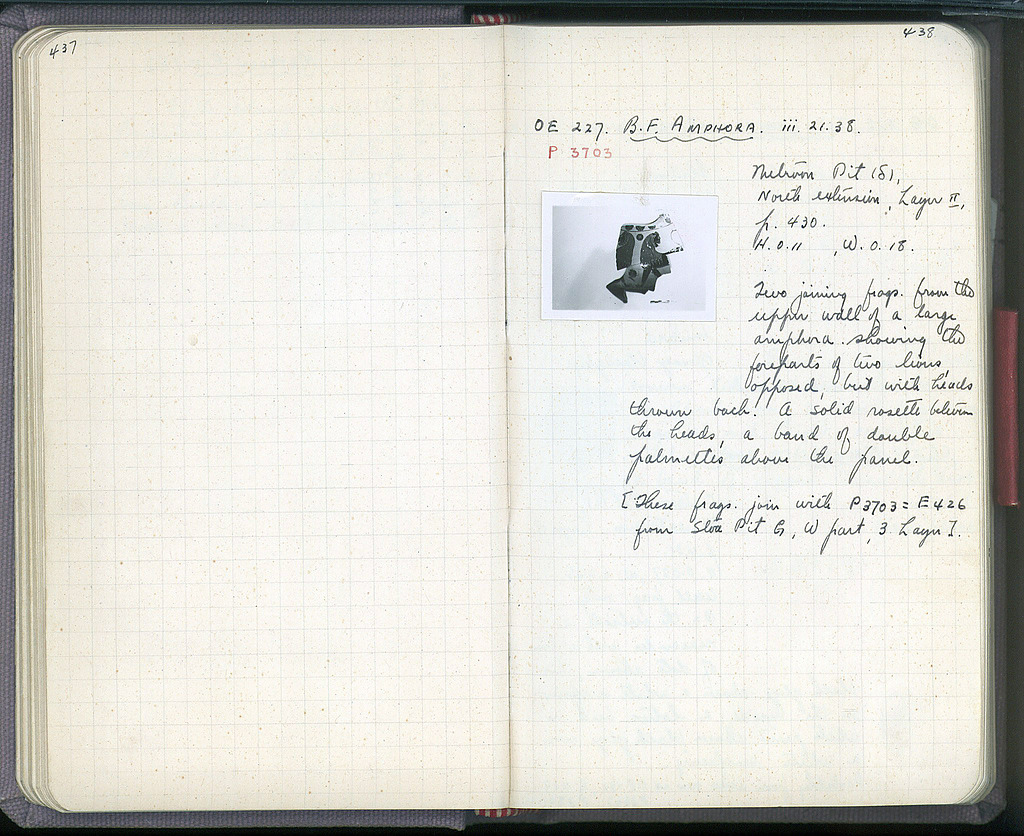 437
438
OE 227. B.F. AMPHORA. iii. 21. 38.
P 3703
Metroon Pit (δ),
North extension, Layer II,
p. 430.
H. 0.11 , W. 0.18.
Two joining frags. from the
upper wall of a large
amphora showing the
foreparts of two lions,
opposed, but with heads
thrown back. A solid rosette between
the heads, a band of double
palmettes above the panel.
[These frags. join with P 3703 = E 426
from Stoa Pit G, W part, 3 Layer I.